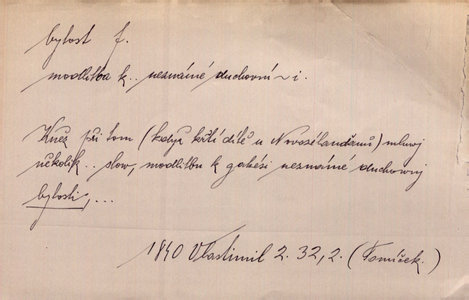 bytost f.
modlitba k.. neznámé duchovní ~ i.
Kněz při tom (když křtí dítě u Novosélanďanů) mluvj
několik.. slow, modlitbu k gakési neznámé duchownj
bytosti,...
1840 Vlastimil 2. 32,2. (Tomíček.)